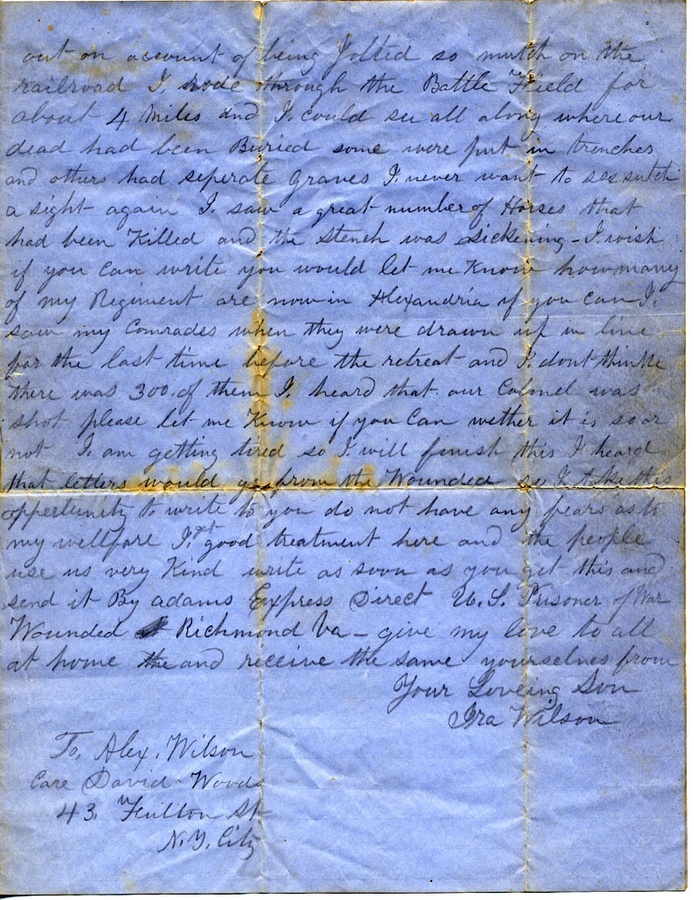 out on account of being Jolted so mutch on the
railroad I. rode through the Battle Field for
about 4 Miles and I. could see all along where our
dead had been Buried some were put in trenches
and others had seperate graves I. never want to see sutch
a sight again I. saw a great number of Horses that
had been Killed and the stench was sickening - I. wish
if you can write you would let me Know how many
of my Regiment are now in Alexandria if you can I.
saw my Comrades when they were drawn up in line
for the last time before the retreat and I. dont think
there was 300. of them I. heard that our Colonel was
shot please let me Know if you Can wether it is so or
not I. am getting tired so I. will finish this I heard
that letters would go from the Wounded so I. take this
oppertunity to write to you do not have any fears as to
my wellfare I. get good treatment here and the people
use us very Kind write as soon as you get this and
send it By adams Express Direct U.S. Prisoner of War
Wounded Richmond Va - give my love to all
at home the and receive the same yourselves from
Your Loveing Son
Ira Wilson
To, Alex. Wilson
Care David Woods
43. Fullton St
N.Y. City